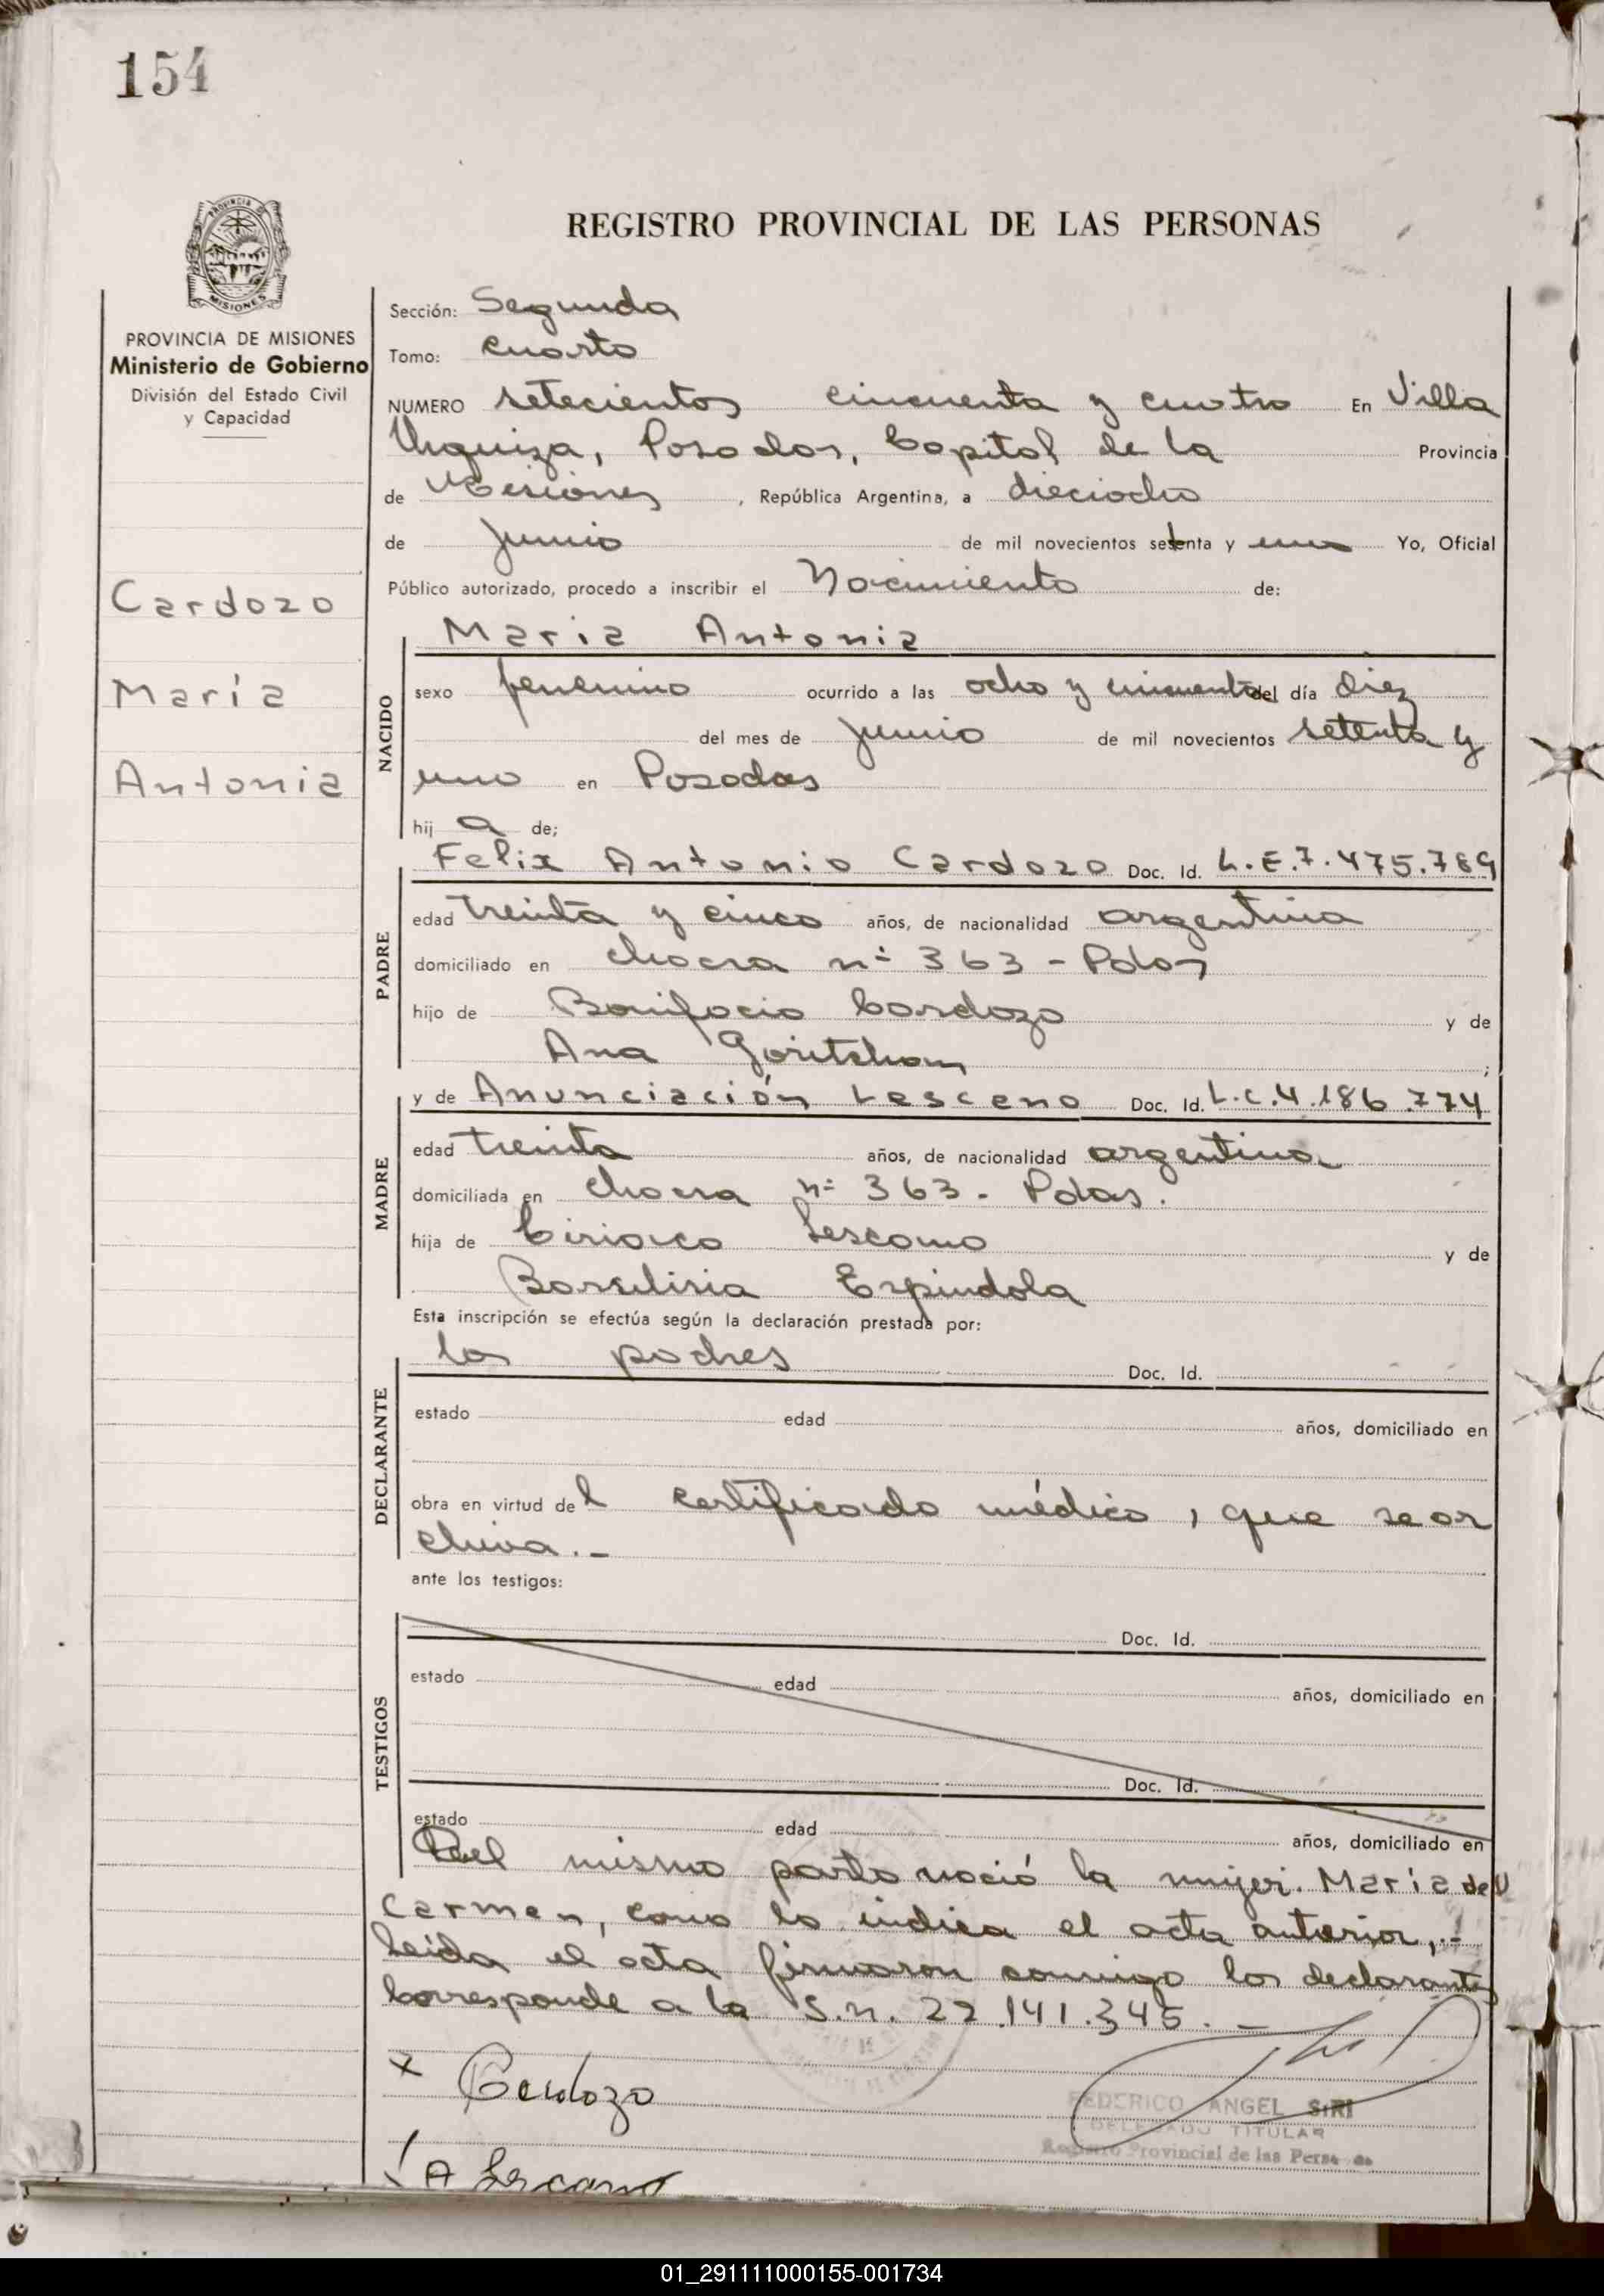 154
REGISTRO PROVINCIAL DE LAS PERSONAS
PROVINCIA DE MISIONES
MISIONES
PROVINCIA DE MISIONES
Ministerio de Gobierno
División del Estado Civil
y Capacidad
Cardozo
María
Antonia
Sección: Segunda
Tomo: cuarto
NUMERO setecientos cincuenta y cuatro En Villa
Urquiza, Posadas, Capital de la Provincia
de Misiones, República Argentina, a dieciocho
de junio de mil novecientos setenta y uno Yo, Oficial
Público autorizado, procedo a inscribir el Nacimiento de:
NACIDO
Maria Antonia
sexo femenino ocurrido a las ocho y cincuenta del día diez
del mes de junio de mil novecientos setenta y
uno en Posadas
hij a de;
PADRE
Felix Antonio Cardozo Doc. Id. L.E.7.475.789
edad treinta y cinco años, de nacionalidad argentina
domiciliado en chacra nº 363 - Pdas
hijo de Bonifacio Cardozo y de
Ana ;
MADRE
y de Anunciación Lescano Doc. Id. L.C.4.186.774
edad treinta años, de nacionalidad argentina
domiciliada en chacra nº 363 - Pdas.
hija de Ciriaco Lescano y de
Espindola
Esta inscripción se efectúa según la declaración prestada por:
DECLARANTE
los padres Doc. Id.
estado edad años, domiciliado en
obra en virtud del certificado médico, que se ar
chiva.-
ante los testigos:
TESTIGOS
Doc. Id.
estado edad años, domiciliado en
Doc. Id.
estado edad años, domiciliado en
Del mismo parto nació la mujer. María del
Carmen, como lo indica el acta anterior,.-
Leida el acta firmaron conmigo los declarantes
Corresponde a la S.n. 22.141.345. -
x Cardozo
FEDERICO ANGEL SIRI
DELEGADO TITULAR
Registro Provincial de las Personas
A Lescano
01_291111000155-001734